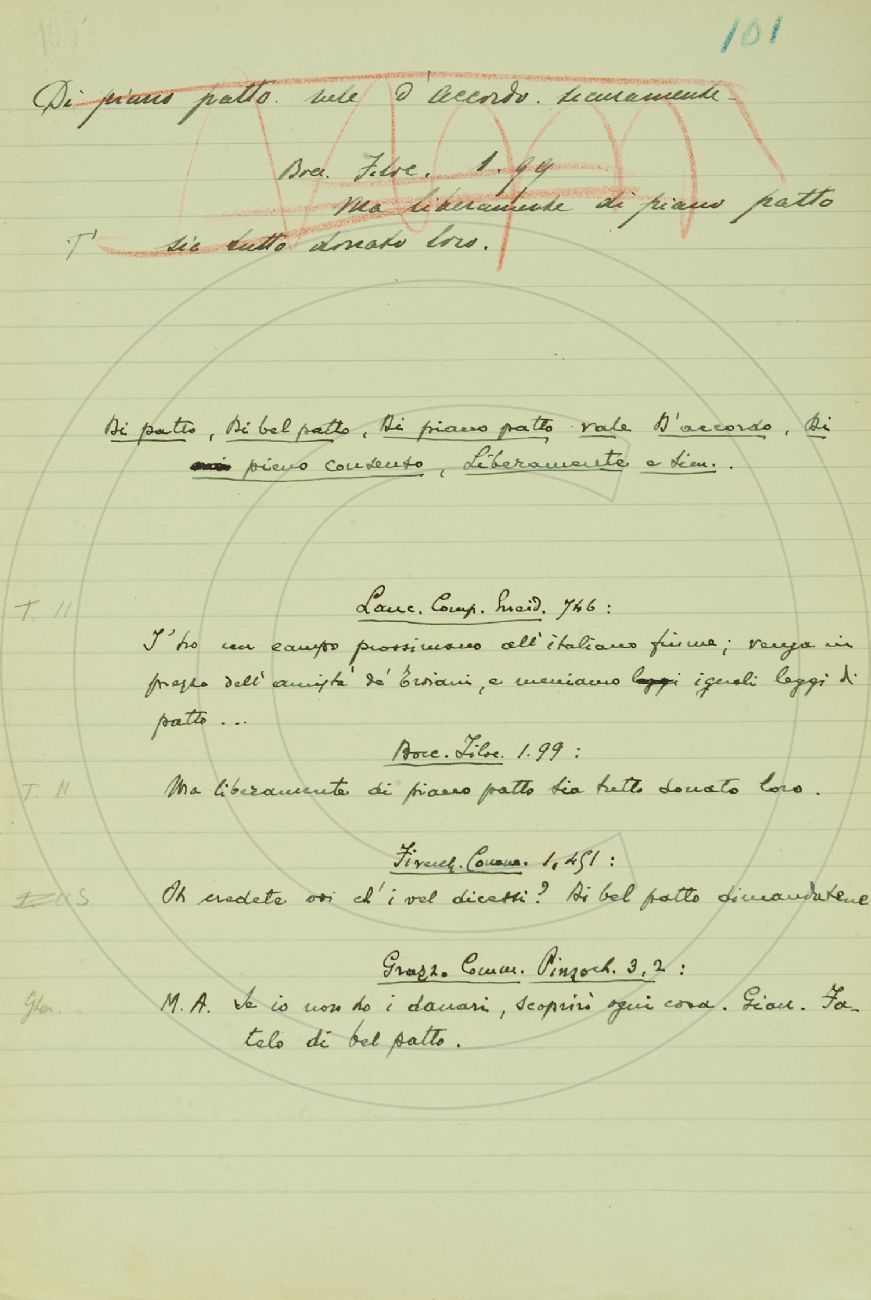 101
Di piano patto. vale d'accordo. sicuramente -
Bocc. Filoc. 1.99
Ma liberamente di piano patto
T sia tutto donato loro.
Di patto, Di bel patto, Di piano patto vale D'accordo, Di
pieno consenso, Liberamente e sim. .
T. II Lanc. Comp. Eneid. 746 :
I' ho un campo prossimano all'italiano fiume; venga in
prezzo dell'amistà de' Troiani, e meniamo leggi iguali leggi di
patto ...
Bocc. Filoc. 1.99 :
T. II Ma liberamente di piano patto sia tutto donato loro.
Firenz. Comm. 1, 451 :
Oh credete voi ch'i vel dicessi? Di bel patto dimandatene
Grazz. Comm. Pinzoch. 3, 2 :
M. A. Se io non ho i danari, scoprirò ogni cosa. Gian. Fa-
telo di bel patto.